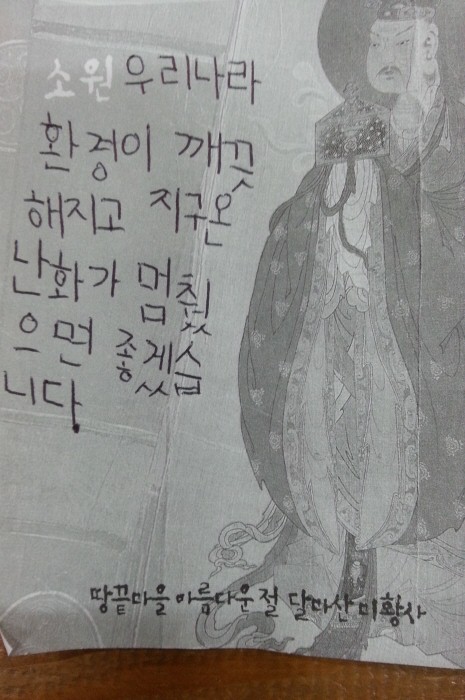 소원 우리나라
환경이 깨끗
해지고 지구온
난화가 멈췄
으면 좋겠습
니다.
땅끝마을 아름다운 절 달마산 미황사